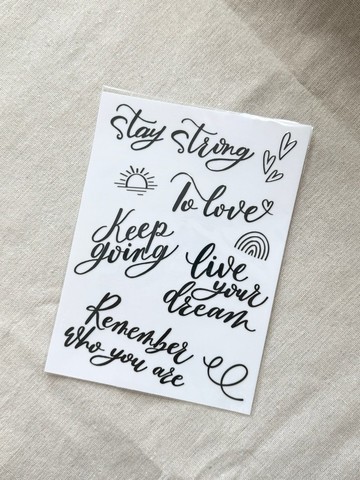 Stay Strong
To love
Keep
going
live
your
dream
Remember
who you are